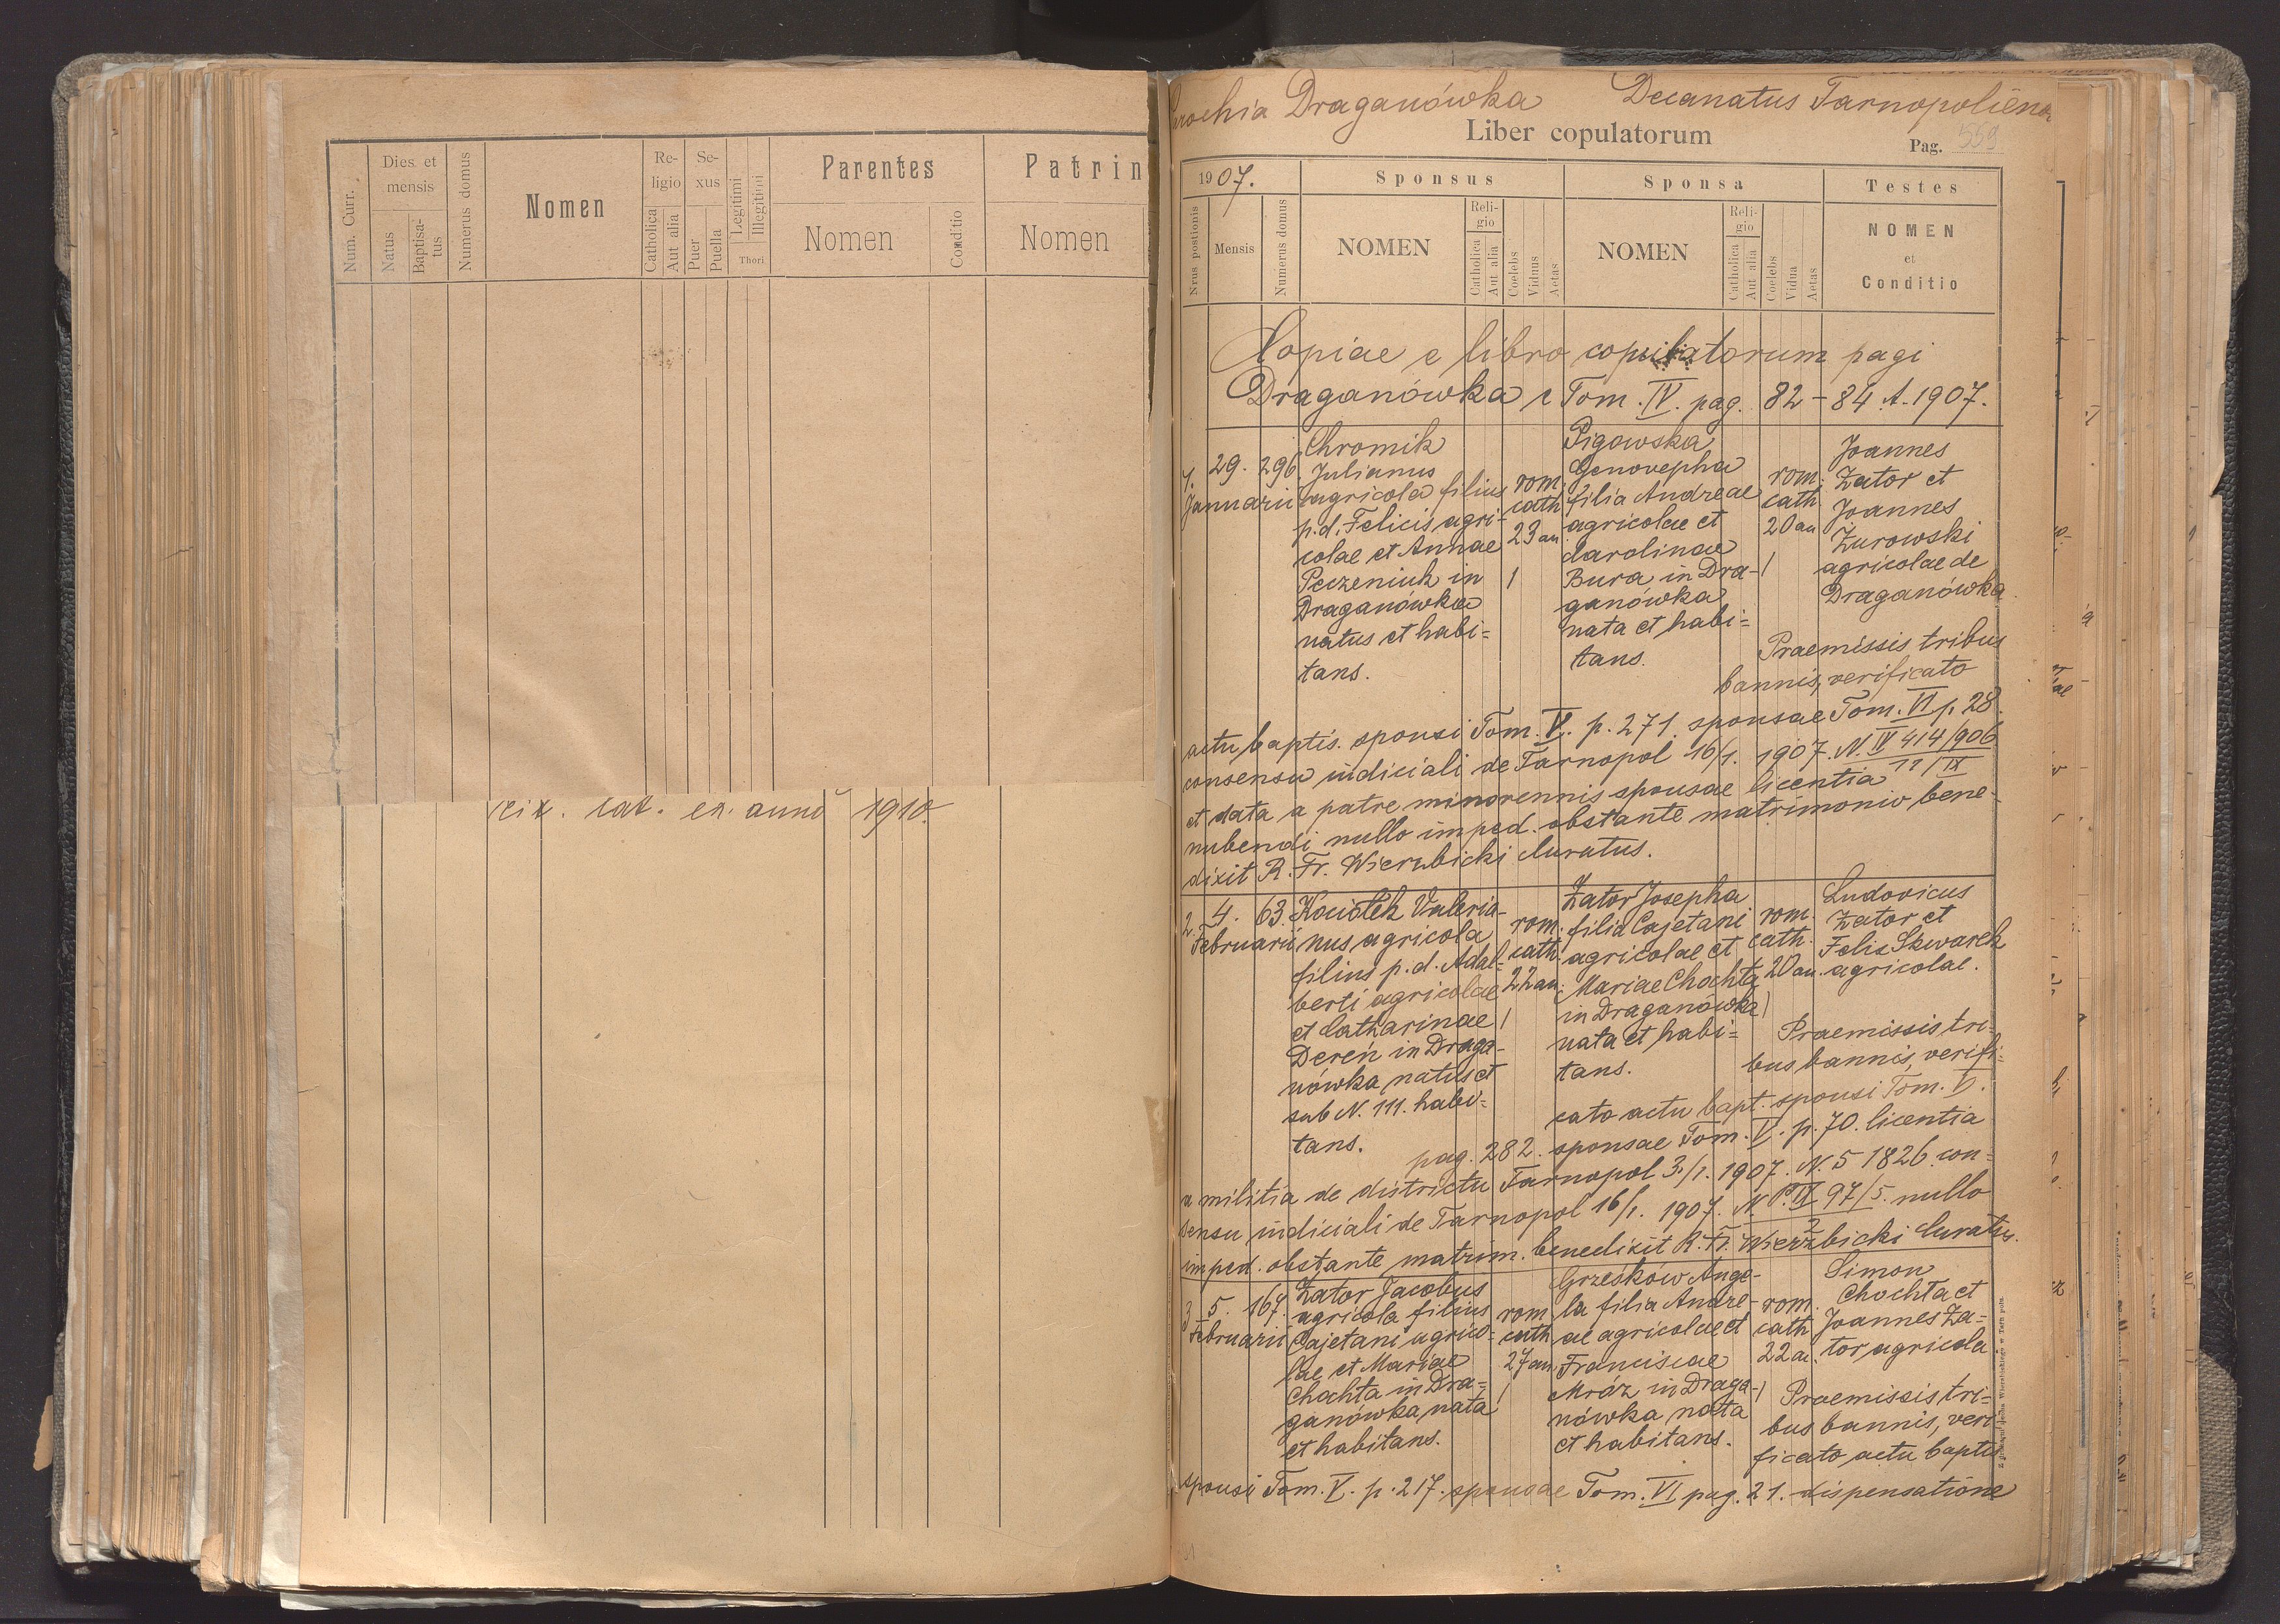 Num. Curr.
Dies et mensis
Natus
Baptisatus
Numerus domus
Nomen
Religio
Catholica
Aut alia
Sexus
Puer
Puella
Legitimi
Illegitimi
Thori
Parentes
Nomen
Conditio
Patrin
Nomen
ex. anno 1910.
Parochia Draganówka Decanatus Tarnopoliens
Liber copulatorum
Pag. 559
1907.
Sponsus
Sponsa
Testes
Nrus postionis
Mensis
Numerus domus
NOMEN
Religio
Catholica
Aut alia
Coelebs
Viduus
Aetas
NOMEN
Religio
Catholica
Aut alia
Coelebs
Vidua
Aetas
NOMEN
et
Conditio
Copiae e libro copulatorum pagi
Draganówka e Tom. IV. pag. 82 - 84 A. 1907.
1.
29.
Januarii
296
Chromik
Julianus
agricola filius
p.d. Felicis agri-
colae et Annae
Peczeniuk in
Draganówka
natus et habi=
tans.
rom.
cath
23 an
1
Pigowska
Genovepha
filia Andreae
agricolae et
Carolinae
Bura in Dra-
ganówka
nata et habi=
tans.
rom.
cath
20 an
1
Joannes
Zator et
Joannes
Żurowski
agricolae de
Draganówka.
Praemissis tribus
bannis, verificato
actu baptis. sponsi Tom. V. p. 271. sponsae Tom. VI p. 28.
consensu iudiciali de Tarnopol 16/1. 1907. N. IV 414/906
11/IX
et data a patre minorennis sponsae licentia
nubendi nullo imped. obstante matrimonio bene-
dixit R. Fr. Wierzbicki Curatus.
2.
4.
Februarii
63.
Kociołek Valeria-
nus agricola
filius p.d. Adal-
berti agricolae
et Catharinae
Dereń in Draga-
nówka natus et
sub N. 111. habi=
tans.
rom.
cath.
22 an.
1
Zator Josepha
filia Cajetani
agricolae et
Mariae Chochta
in Draganówka
nata et habi=
tans.
rom.
cath.
20 an.
1
Ludovicus
Zator et
Felix Skwarek
agricolae.
Praemissis tri=
bus bannis, verifi=
cato actu bapt. sponsi Tom. V.
pag. 282. sponsae Tom. V. p. 70. licentia
a militia de districtu Tarnopol 3/1. 1907. N. 5 1826. con=
sensu iudiciali de Tarnopol 16/1. 1907. N. P. IV 97/5. nullo
2
imped. obstante matrim. benedixit R. Fr. Wierzbicki Curatus.
3
5.
Februarii
167.
Zator Jacobus
agricola filius
Cajetani agrico=
lae et Mariae
Chochta in Dra=
ganówka nata
et habitans.
rom
cath
27 an
1
Grześków Ange-
la filia Andre-
ae agricolae et
Franciscae
Mróz in Draga-
nówka nata
et habitans.
rom.
cath
22 an.
1
Simon
Chochta et
Joannes Za=
tor agricola
Praemissis tri=
bus bannis, veri-
ficato actu baptis
sponsi Tom. V. p. 217. sponsae Tom. VI pag. 21. dispensatione